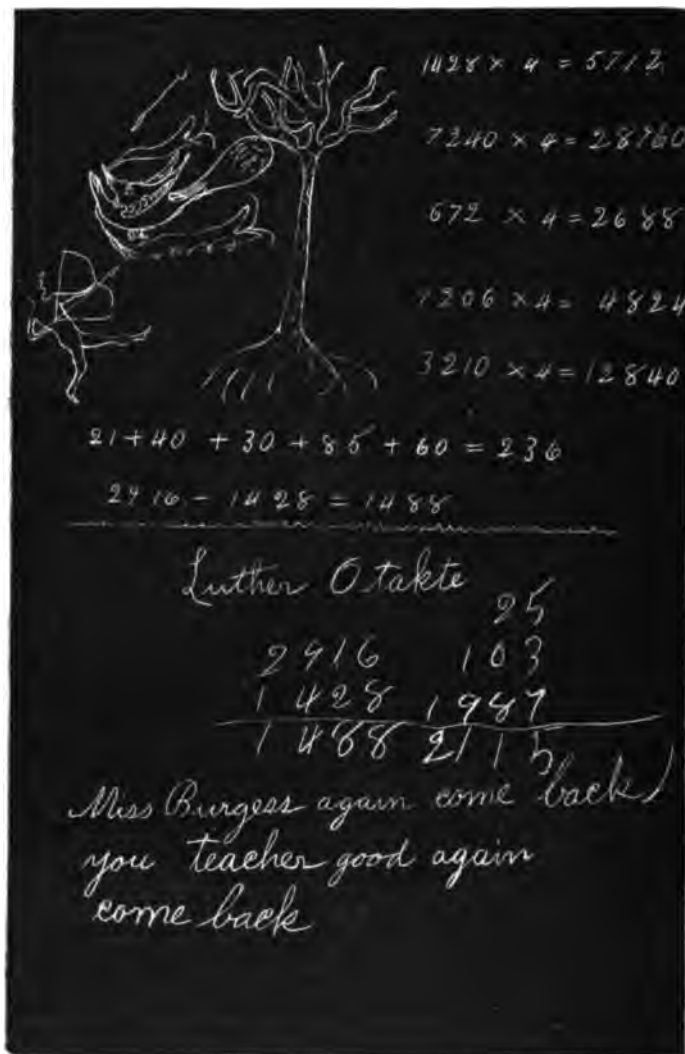 1428 × 4 = 5712
7240 × 4 = 28960
672 × 4 = 2688
1206 × 4 = 4824
3210 × 4 = 12840
21 + 40 + 30 + 85 + 60 = 236
2916 - 1428 = 1488
Luther Otakte
25
2916 103
1428 1987
1488 2115
Miss Burgess again come back)
you teacher good again
come back